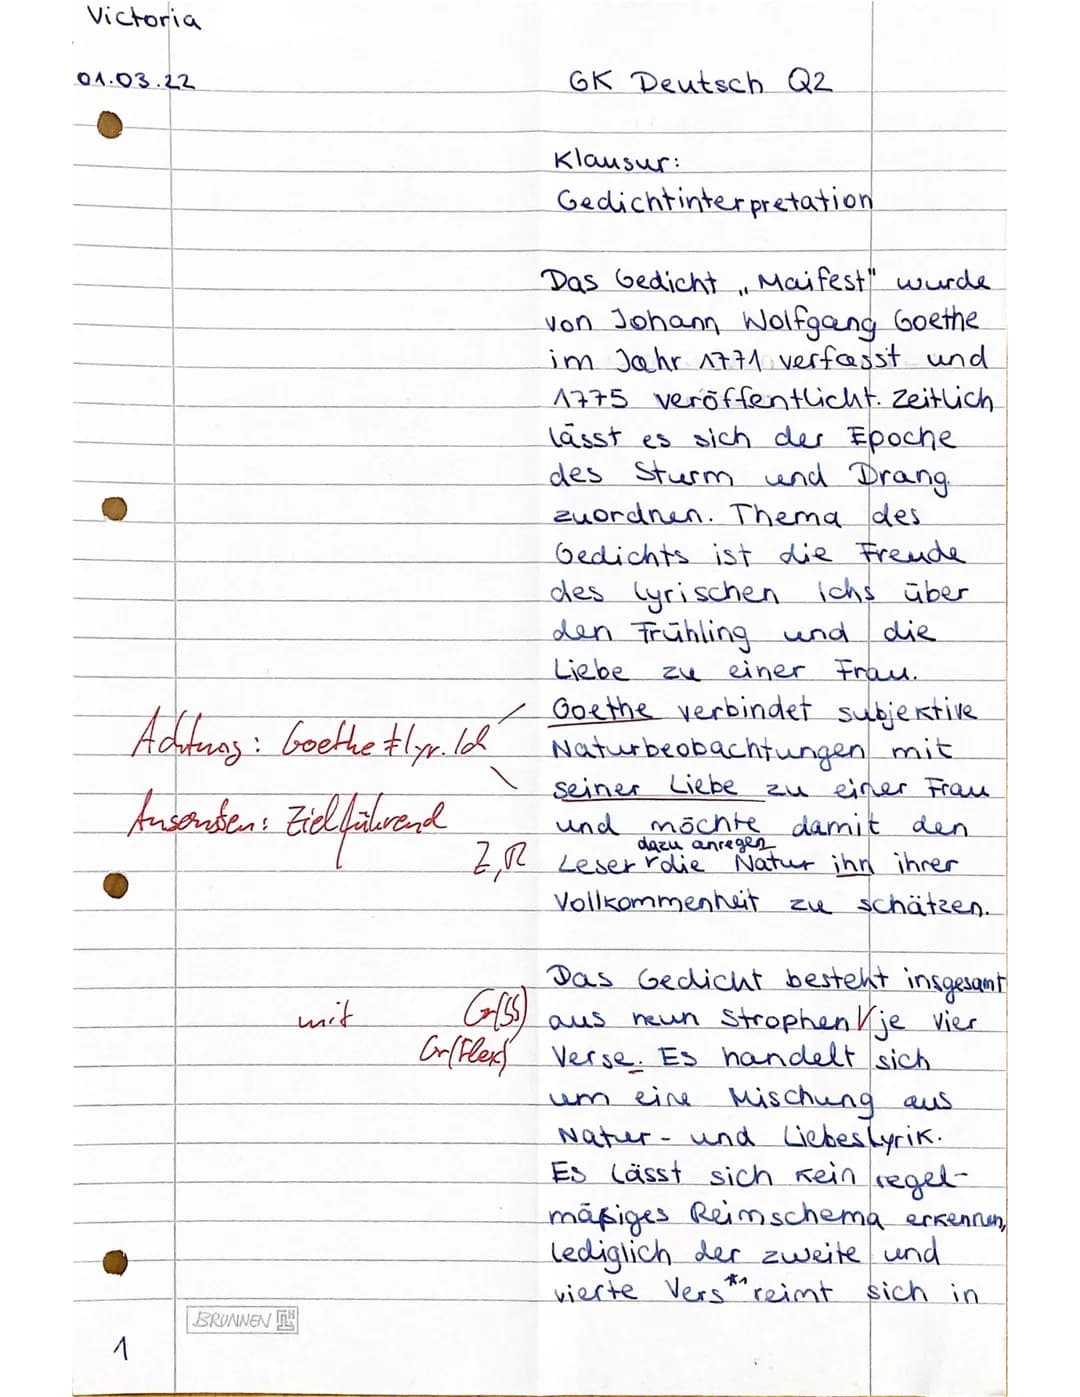 Victoria
01.03.22
GK Deutsch Q2
Klausur:
Gedichtinterpretation
Das Gedicht „Maifest" wurde
von Johann Wolfgang Goethe
im Jahr 1771 verfasst und
1775 veröffentlicht. Zeitlich
lässt es sich der Epoche
des Sturm und Drang
zuordnen. Thema des
Gedichts ist die Freude
des lyrischen Ichs über
den Frühling und die
Liebe zu einer Frau.
Goethe verbindet subjektive
Achtung: Goethe ≠ lyr. Ich
Naturbeobachtungen mit
seiner Liebe zu einer Frau
Ansonsten: Zielführend
und möchte damit den
dazu anregen
Z, R
Leser die Natur ihn ihrer
Vollkommenheit zu schätzen.
Das Gedicht besteht insgesamt
mit Gr(SS)
aus neun Strophen je vier
Gr(Flex)
Verse. Es handelt sich
um eine Mischung aus
Natur- und Liebeslyrik.
Es lässt sich kein regel-
mäßiges Reimschema erkennen,
lediglich der zweite und
vierte Vers *1 reimt sich in
BRUNNEN
1